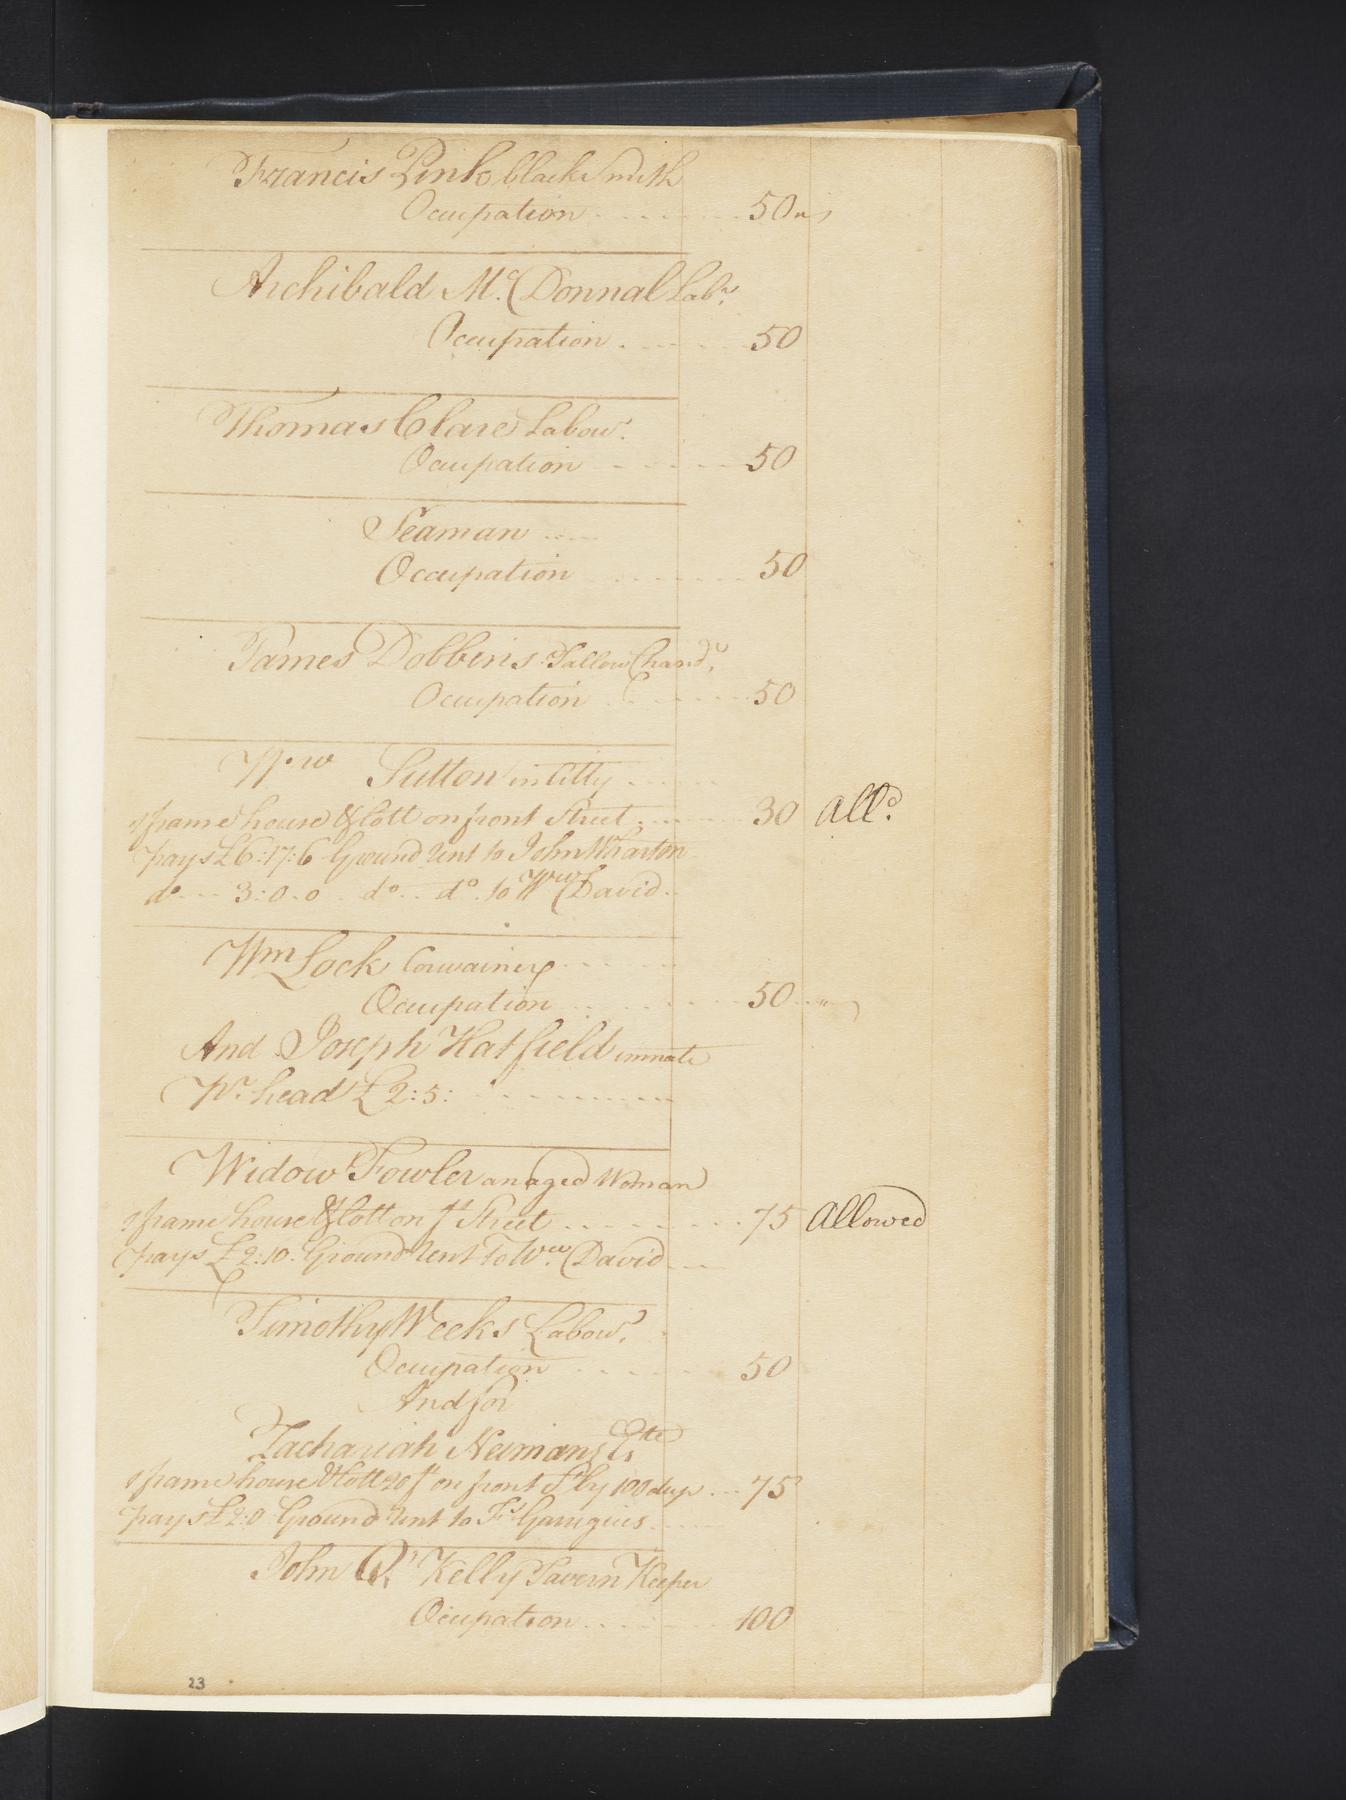 Francis Pink black Smith
Occupation 50
Archibald Mc. Donnal Labr.
Occupation 50
Thomas Clare Labour.
Occupation 50
Seaman
Occupation 50
James Dobbins Tallow Chandr.
Occupation 50
Ww Sutton in Citty
1 frame house & lott on front Street 30 Alld.
pays £6:17:6 Ground Rent to John Wharton
do 3:0.0 do do to Ww David
Wm Lock Corwainer
Occupation 50
And Joseph Hatfield inmate
Pr. head £2:5:
Widow Fowler an aged Woman
1 frame house & lott on ft Street 75 Allowed
pays £2:10 Ground Rent To Ww. David
Timothy Weeks Labour.
Occupation 50
And for
Zachariah Neumans Estte
1 frame house & lott 20 ft on front St by 100 deep 75
pays £2:0 Ground Rent to Fs Garrigues
John Kelly Tavern Keeper
Occupation 100
23